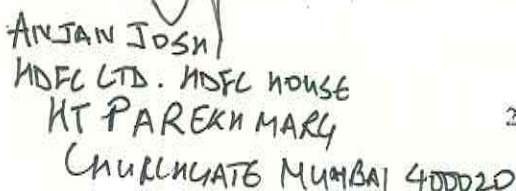 ANJAN JOSHI
HDFC LTD. HDFC HOUSE
HT PAREKH MARG
2
CHURCHGATE MUMBAI 400020